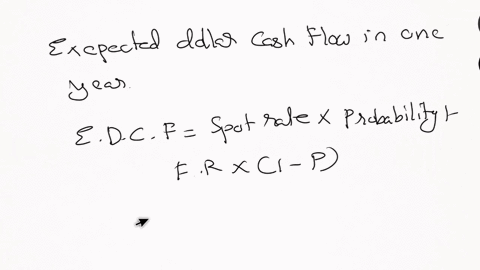 Exepected ddlar Cash Flow in one
year.
E.D.C.F = Spot rate × Probability +
F.R × (1 - P)